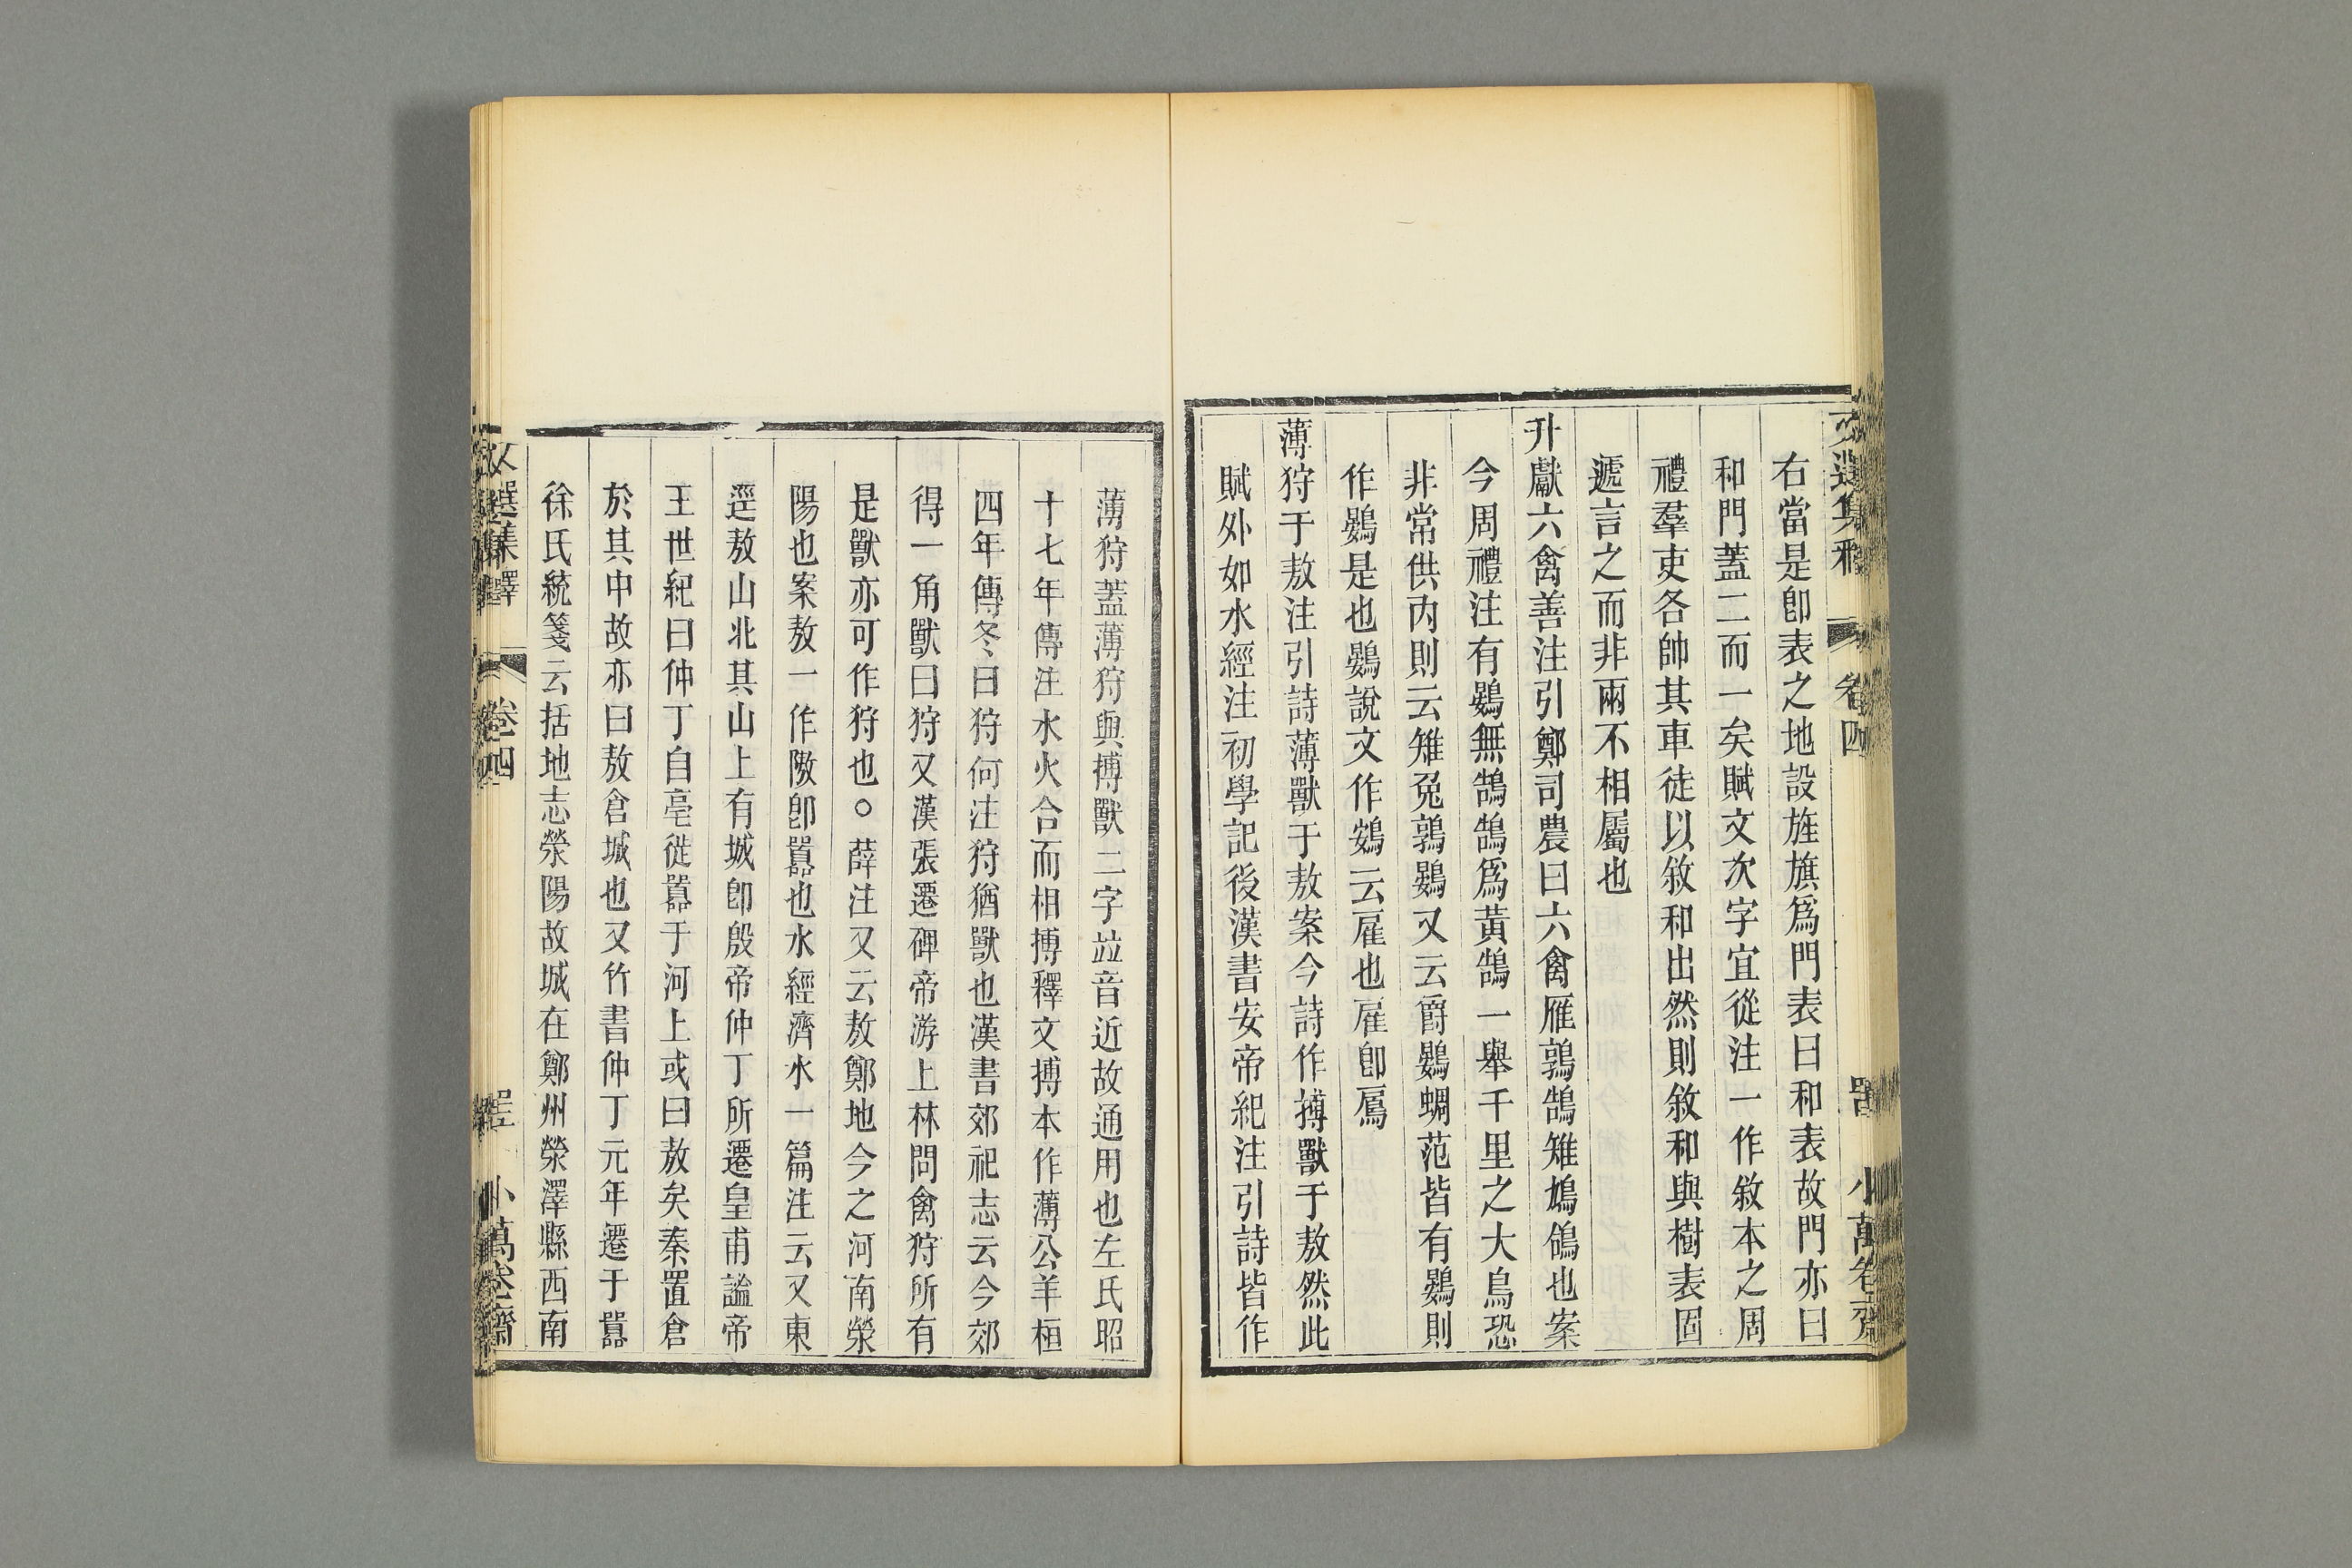 右當是卽表之地設旌旗爲門表曰和表故門亦曰
和門蓋二而一矣賦文次字宜從注一作敘本之周
禮羣吏各帥其車徒以敘和出然則敘和與樹表固
遞言之而非兩不相屬也
升獻六禽善注引鄭司農曰六禽雁鶉鷃雉鳩鴿也案
今周禮注有鷃無鵠鵠爲黃鵠一舉千里之大鳥恐
非常供內則云雉兔鶉鷃又云爵鷃蜩范皆有鷃則
作鷃是也鷃說文作鴳云雇也雇卽鳸
薄狩于敖注引詩薄獸于敖案今詩作搏獸于敖然此
賦外如水經注初學記後漢書安帝紀注引詩皆作
薄狩蓋薄狩與搏獸二字竝音近故通用也左氏昭
十七年傳注水火合而相搏釋文搏本作薄公羊桓
四年傳冬曰狩何注狩猶獸也漢書郊祀志云今郊
得一角獸曰狩又漢張遷碑帝游上林問禽狩所有
是獸亦可作狩也○薛注又云敖鄭地今之河南滎
陽也案敖一作隞卽囂也水經濟水一篇注云又東
逕敖山北其山上有城卽殷帝仲丁所遷皇甫謐帝
王世紀曰仲丁自亳徙囂于河上或曰敖矣秦置倉
於其中故亦曰敖倉城也又竹書仲丁元年遷于囂
徐氏統箋云括地志滎陽故城在鄭州滎澤縣西南
文選集釋 卷四 小萬卷齋